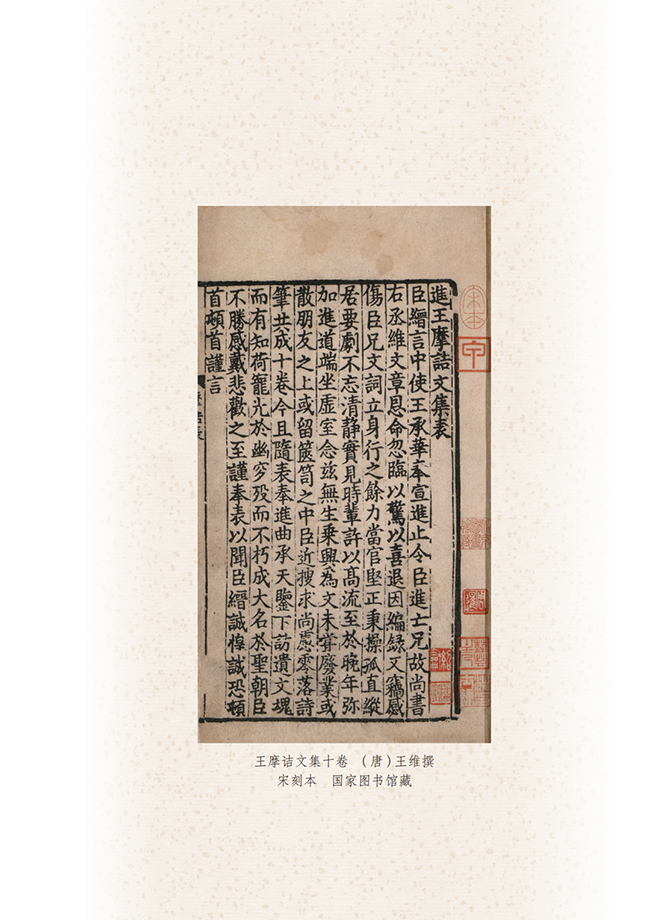 進王摩詰文集表
臣縉言中使王承華奉宣進止令臣進亡兄故尚書
右丞維文章恩命忽臨以驚以喜退因編錄又竊感
傷臣兄文詞立身行之餘力當官堅正秉操孤直縱
居要劇不忘清静實見時輩許以髙流至於晚年弥
加進道端坐虚室念兹無生乗興為文未甞廢業或
散朋友之上或留篋笥之中臣近搜求尚慮零落詩
筆共成十卷今且隨表奉進曲承天鑒下訪遺文魂
而有知荷寵光於幽穸殁而不朽成大名於聖朝臣
不勝感戴悲歡之至謹奉表以聞臣縉誠惶誠恐頓
首頓首謹言
王摩诘文集十卷 （唐）王维撰
宋刻本 国家图书馆藏